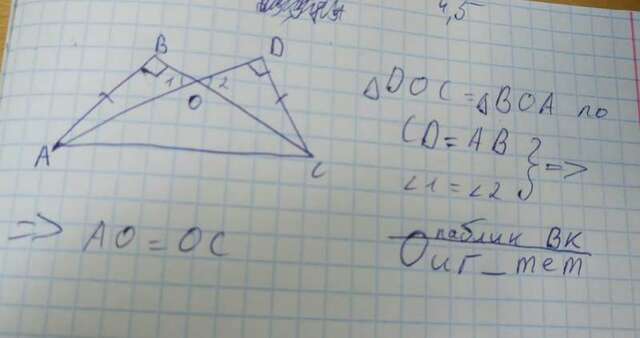 4,5
B
D
1
2
O
A
C
ΔDOC=ΔBOA по
CD=AB
=>
∠1=∠2
=> AO=OC
паблик ВК
Оиг_тет